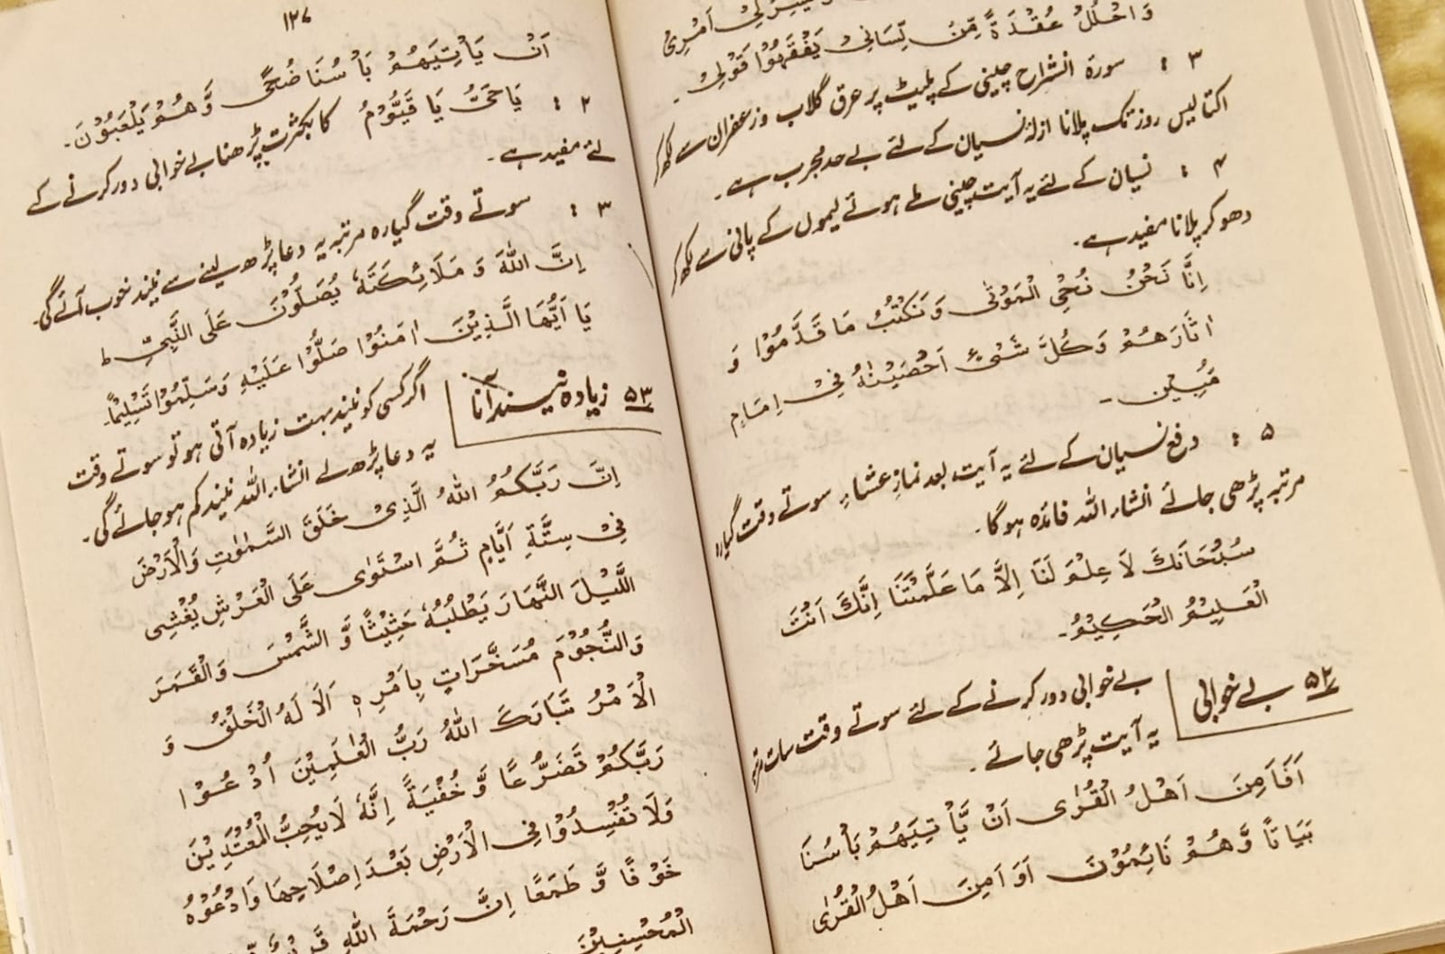 لِیْ اَمْرِیْ
وَاحْلُلْ عُقْدَةً مِّنْ لِّسَانِیْ یَفْقَهُوْا قَوْلِیْ۔
۳ : سورۃ انشراح چینی کے پلیٹ پر عرق گلاب و زعفران سے لکھ کر
اکتالیس روز تک پلانا ازلۂ نسیان کے لئے بے حد مجرب ہے۔
۴ : نسیان کے لئے یہ آیت چینی ملے ہوئے لیموں کے پانی سے لکھ کر
دھو کر پلانا مفید ہے۔
اِنَّا نَحْنُ نُحْیِ الْمَوْتٰی وَنَکْتُبُ مَا قَدَّمُوْا وَ
اٰثَارَهُمْ وَکُلَّ شَیْءٍ اَحْصَیْنٰهُ فِیْ اِمَامٍ
مُّبِیْن ۔
۵ : دفع نسیان کے لئے یہ آیت، بعد نمازِ عشاء سوتے وقت گیارہ
مرتبہ پڑھی جائے انشاء اللہ فائدہ ہوگا۔
سُبْحَانَكَ لَا عِلْمَ لَنَا اِلَّا مَا عَلَّمْتَنَا اِنَّكَ اَنْتَ
الْعَلِیْمُ الْحَکِیْمُ۔
۵۲ بے خوابی بے خوابی دور کرنے کے لئے سوتے وقت سات مرتبہ
یہ آیت پڑھی جائے ۔
اَفَاَمِنَ اَهْلُ الْقُرٰی اَنْ یَّاْتِیَهُمْ بَاْسُنَا
بَیَاتًا وَّهُمْ نَائِمُوْنَ اَوَ اَمِنَ اَهْلُ الْقُرٰی
۱۲۷
اَنْ یَاْتِیَهُمْ بَاْسُنَا ضُحًی وَّهُمْ یَلْعَبُوْنَ۔
۲ : یَا حَیُّ یَا قَیُّوْمُ کا بکثرت پڑھنا بے خوابی دور کرنے کے
لئے مفید ہے ۔
۳ : سوتے وقت گیارہ مرتبہ یہ دعا پڑھ لینے سے نیند خوب آئے گی۔
اِنَّ اللّٰهَ وَ مَلَائِکَتَهٗ یُصَلُّوْنَ عَلَی النَّبِیِّ ط
یَا اَیُّهَا الَّذِیْنَ اٰمَنُوْا صَلُّوْا عَلَیْهِ وَسَلِّمُوْا تَسْلِیْمًا۔
۵۳ زیادہ نیند آنا اگر کسی کو نیند بہت زیادہ آتی ہو تو سوتے وقت
یہ دعا پڑھ لے انشاء اللہ نیند کم ہو جائے گی۔
اِنَّ رَبَّکُمُ اللّٰهُ الَّذِیْ خَلَقَ السَّمٰوٰتِ وَالْاَرْضَ
فِیْ سِتَّةِ اَیَّامٍ ثُمَّ اسْتَوٰی عَلَی الْعَرْشِ یُغْشِی
اللَّیْلَ النَّهَارَ یَطْلُبُهٗ حَثِیْثًا وَّ الشَّمْسَ وَالْقَمَرَ
وَالنُّجُوْمَ مُسَخَّرَاتٍ بِاَمْرِهٖ اَلَا لَهُ الْخَلْقُ وَ
الْاَمْرُ تَبَارَكَ اللّٰهُ رَبُّ الْعٰلَمِیْنَ اُدْعُوْا
رَبَّکُمْ تَضَرُّعًا وَّ خُفْیَةً اِنَّهٗ لَا یُحِبُّ الْمُعْتَدِیْنَ
وَلَا تُفْسِدُوْا فِی الْاَرْضِ بَعْدَ اِصْلَاحِهَا وَادْعُوْهُ
خَوْفًا وَّ طَمَعًا اِنَّ رَحْمَةَ اللّٰهِ
الْمُحْسِنِیْنَ